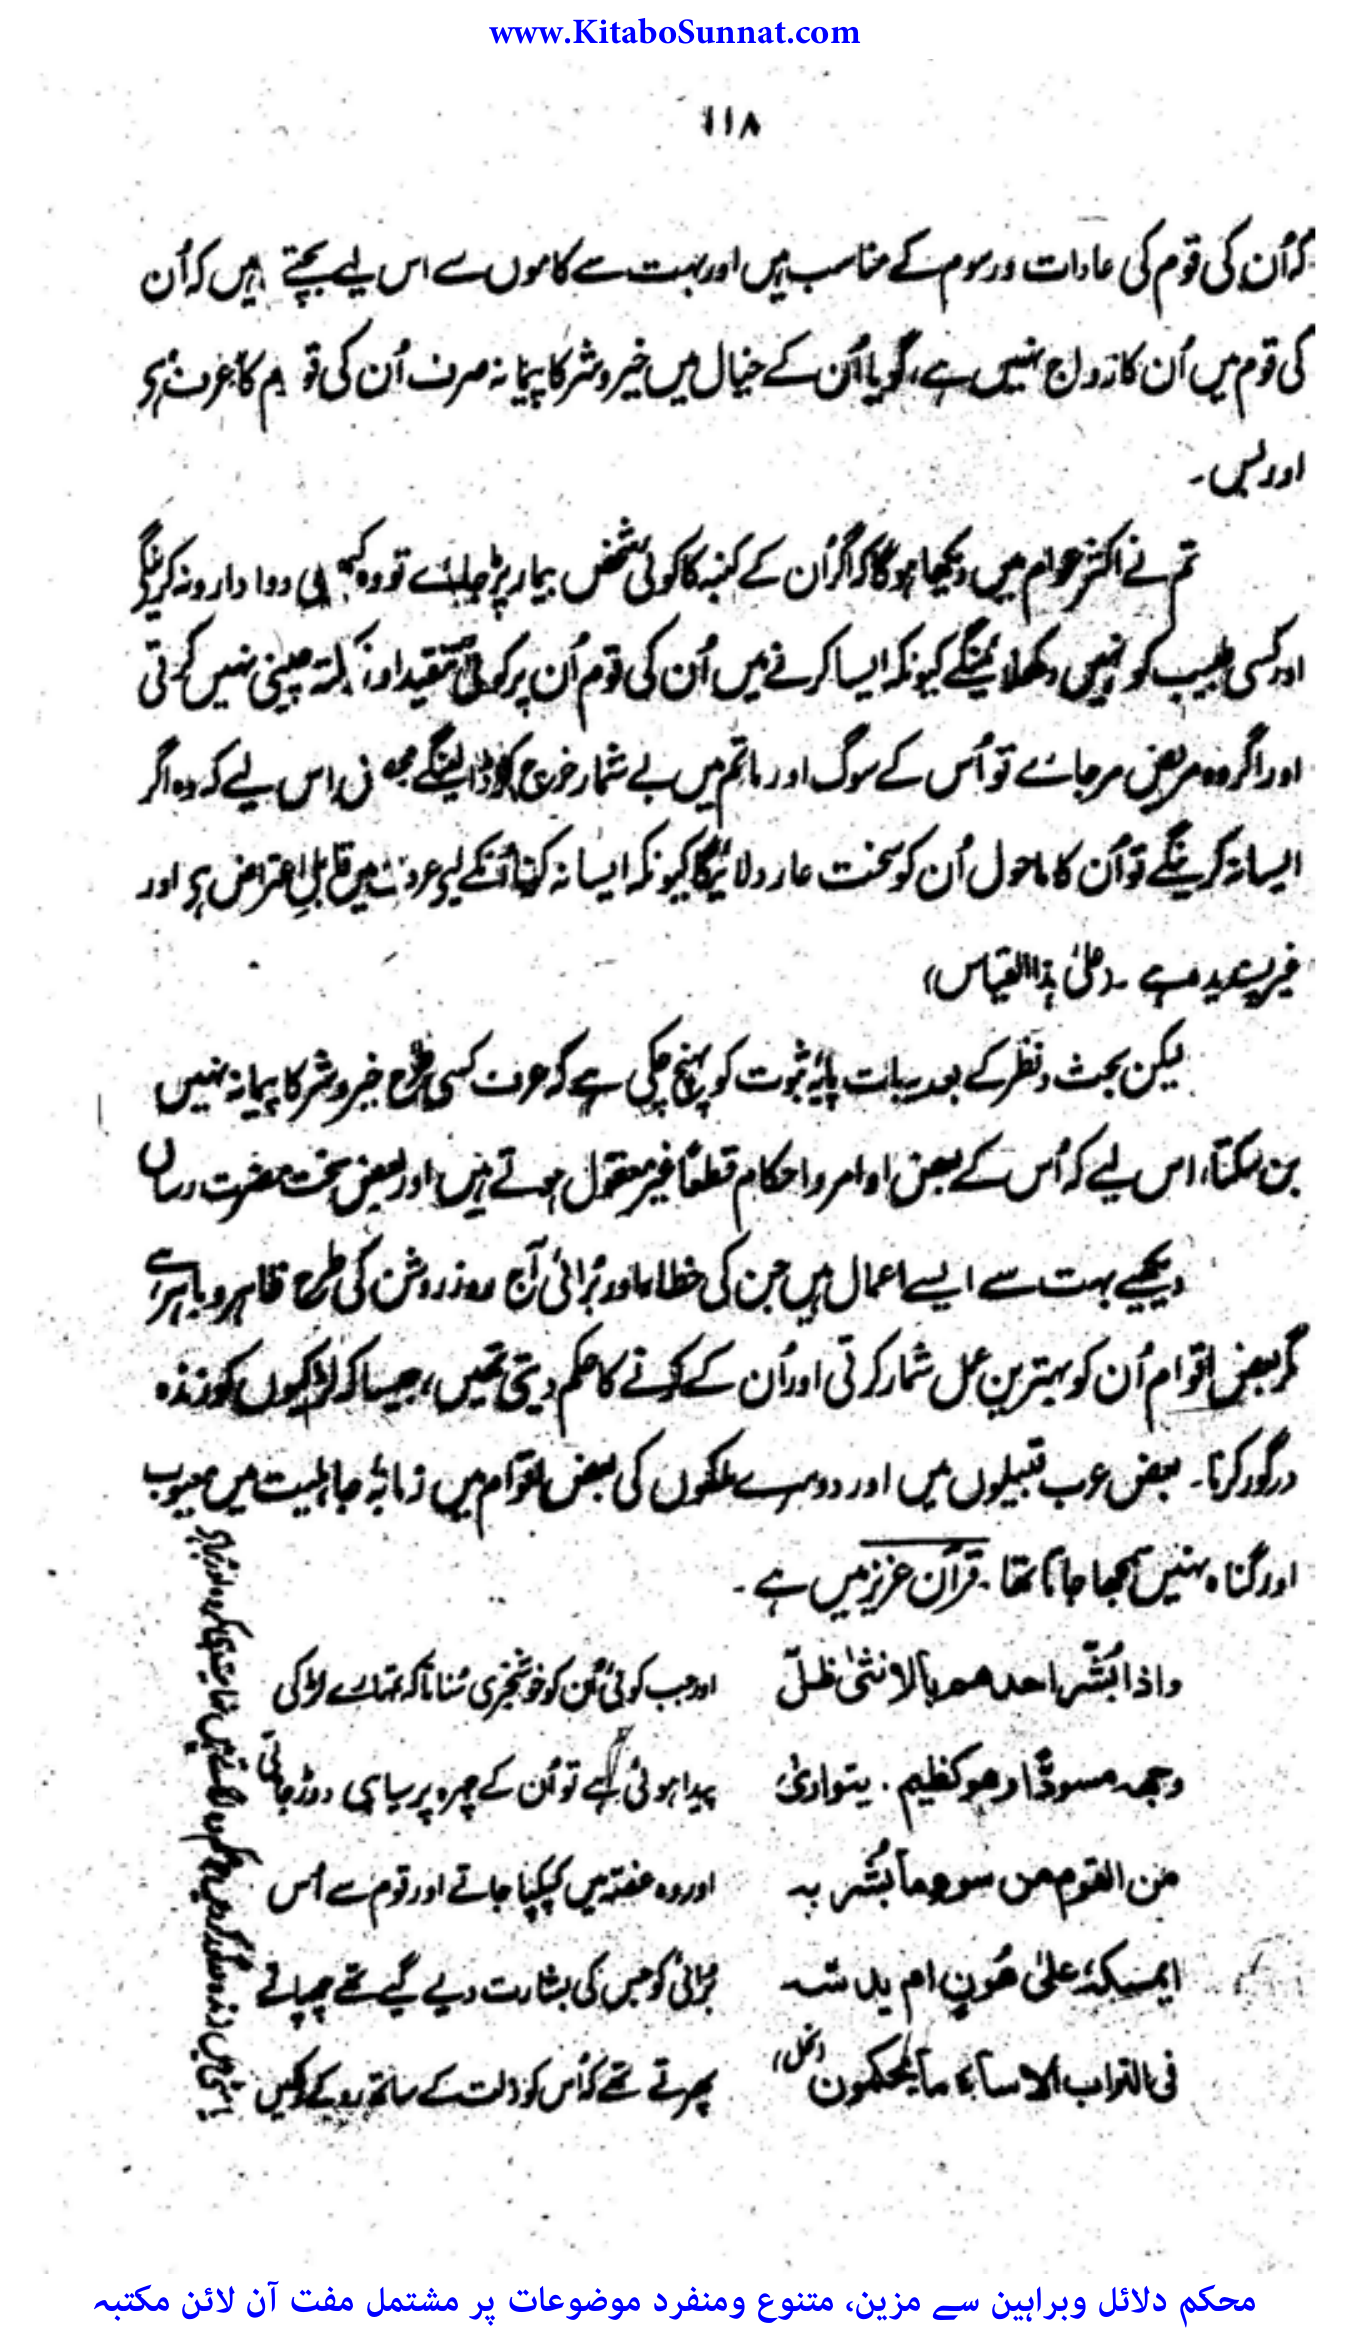 www.KitaboSunnat.com
۱۱۸
کہ اُن کی قوم کی عادات ورسوم کے مناسب ہیں اور بہت سے کاموں سے اس لیے بچتے ہیں کہ اُن
کی قوم میں اُن کا رواج نہیں ہے، گویا اُن کے خیال میں خیروشر کا پیمانہ صرف اُن کی قوم کا عرف ہی ہے
اور بس۔
تم نے اکثر عوام میں دیکھا ہوگا کہ اگر اُن کے کنبہ کا کوئی شخص بیمار پڑ جائے تو وہ کبھی دوا دارو نہ کرینگے
اور کسی طبیب کو نہیں دکھلائینگے کیونکہ ایسا کرنے میں اُن کی قوم اُن پر کوئی تنقید اور نکتہ چینی نہیں کرتی
اور اگر وہ مریض مرجائے تو اُس کے سوگ اور ماتم میں بے شمار خرچ کر ڈالینگے اس لیے کہ وہ اگر
ایسا نہ کرینگے تو اُن کا ماحول اُن کو سخت عار دلائیگا کیونکہ ایسا نہ کرنا اُنکے لیے عرف میں قابلِ اعتراض ہے اور
غیر پسندیدہ ہے۔ (علیٰ ہذا القیاس)
لیکن بحث ونظر کے بعد یہ بات پایۂ ثبوت کو پہنچ چکی ہے کہ عرف کسی طرح خیروشر کا پیمانہ نہیں
بن سکتا، اس لیے کہ اُس کے بعض اوامر واحکام قطعًا غیر معقول ہوتے ہیں اور بعض سخت مضرت رساں
دیکھیے بہت سے ایسے اعمال ہیں جن کی خطا اور بُرائی آج روز روشن کی طرح ظاہر وباہر ہے
مگر بعض اقوام اُن کو بہترین عمل شمار کرتی اور اُن کے کرنے کا حکم دیتی تھیں، جیسا کہ لڑکیوں کو زندہ
درگور کرنا۔ بعض عرب قبیلوں میں اور دوسرے ملکوں کی بعض اقوام میں زمانۂ جاہلیت میں معیوب
اور گناہ نہیں سمجھا جاتا تھا۔ قرآن عزیز میں ہے۔
واذا بُشّر احدھم بالانثیٰ ظلّ
وجھہ مسودًّا وھو کظیم۔ یتواریٰ
من القوم من سوء ما بُشّر بہ
ایمسکہٗ علیٰ ھُونٍ ام یدسّہ
فی التراب الا ساء ما یحکمون (نحل)
اور جب کوئی اُن کو خوشخبری سُناتا کہ تمہارے لڑکی
پیدا ہوئی ہے تو اُن کے چہرہ پر سیاہی دوڑ جاتی
اور وہ غصّہ میں کپکپا جاتے اور قوم سے اُس
بُرائی کو جس کی بشارت دیے گیے تھے چھپاتے
پھرتے تھے کہ اُس کو ذلت کے ساتھ روکے رکھیں
محکم دلائل وبراہین سے مزین، متنوع ومنفرد موضوعات پر مشتمل مفت آن لائن مکتبہ